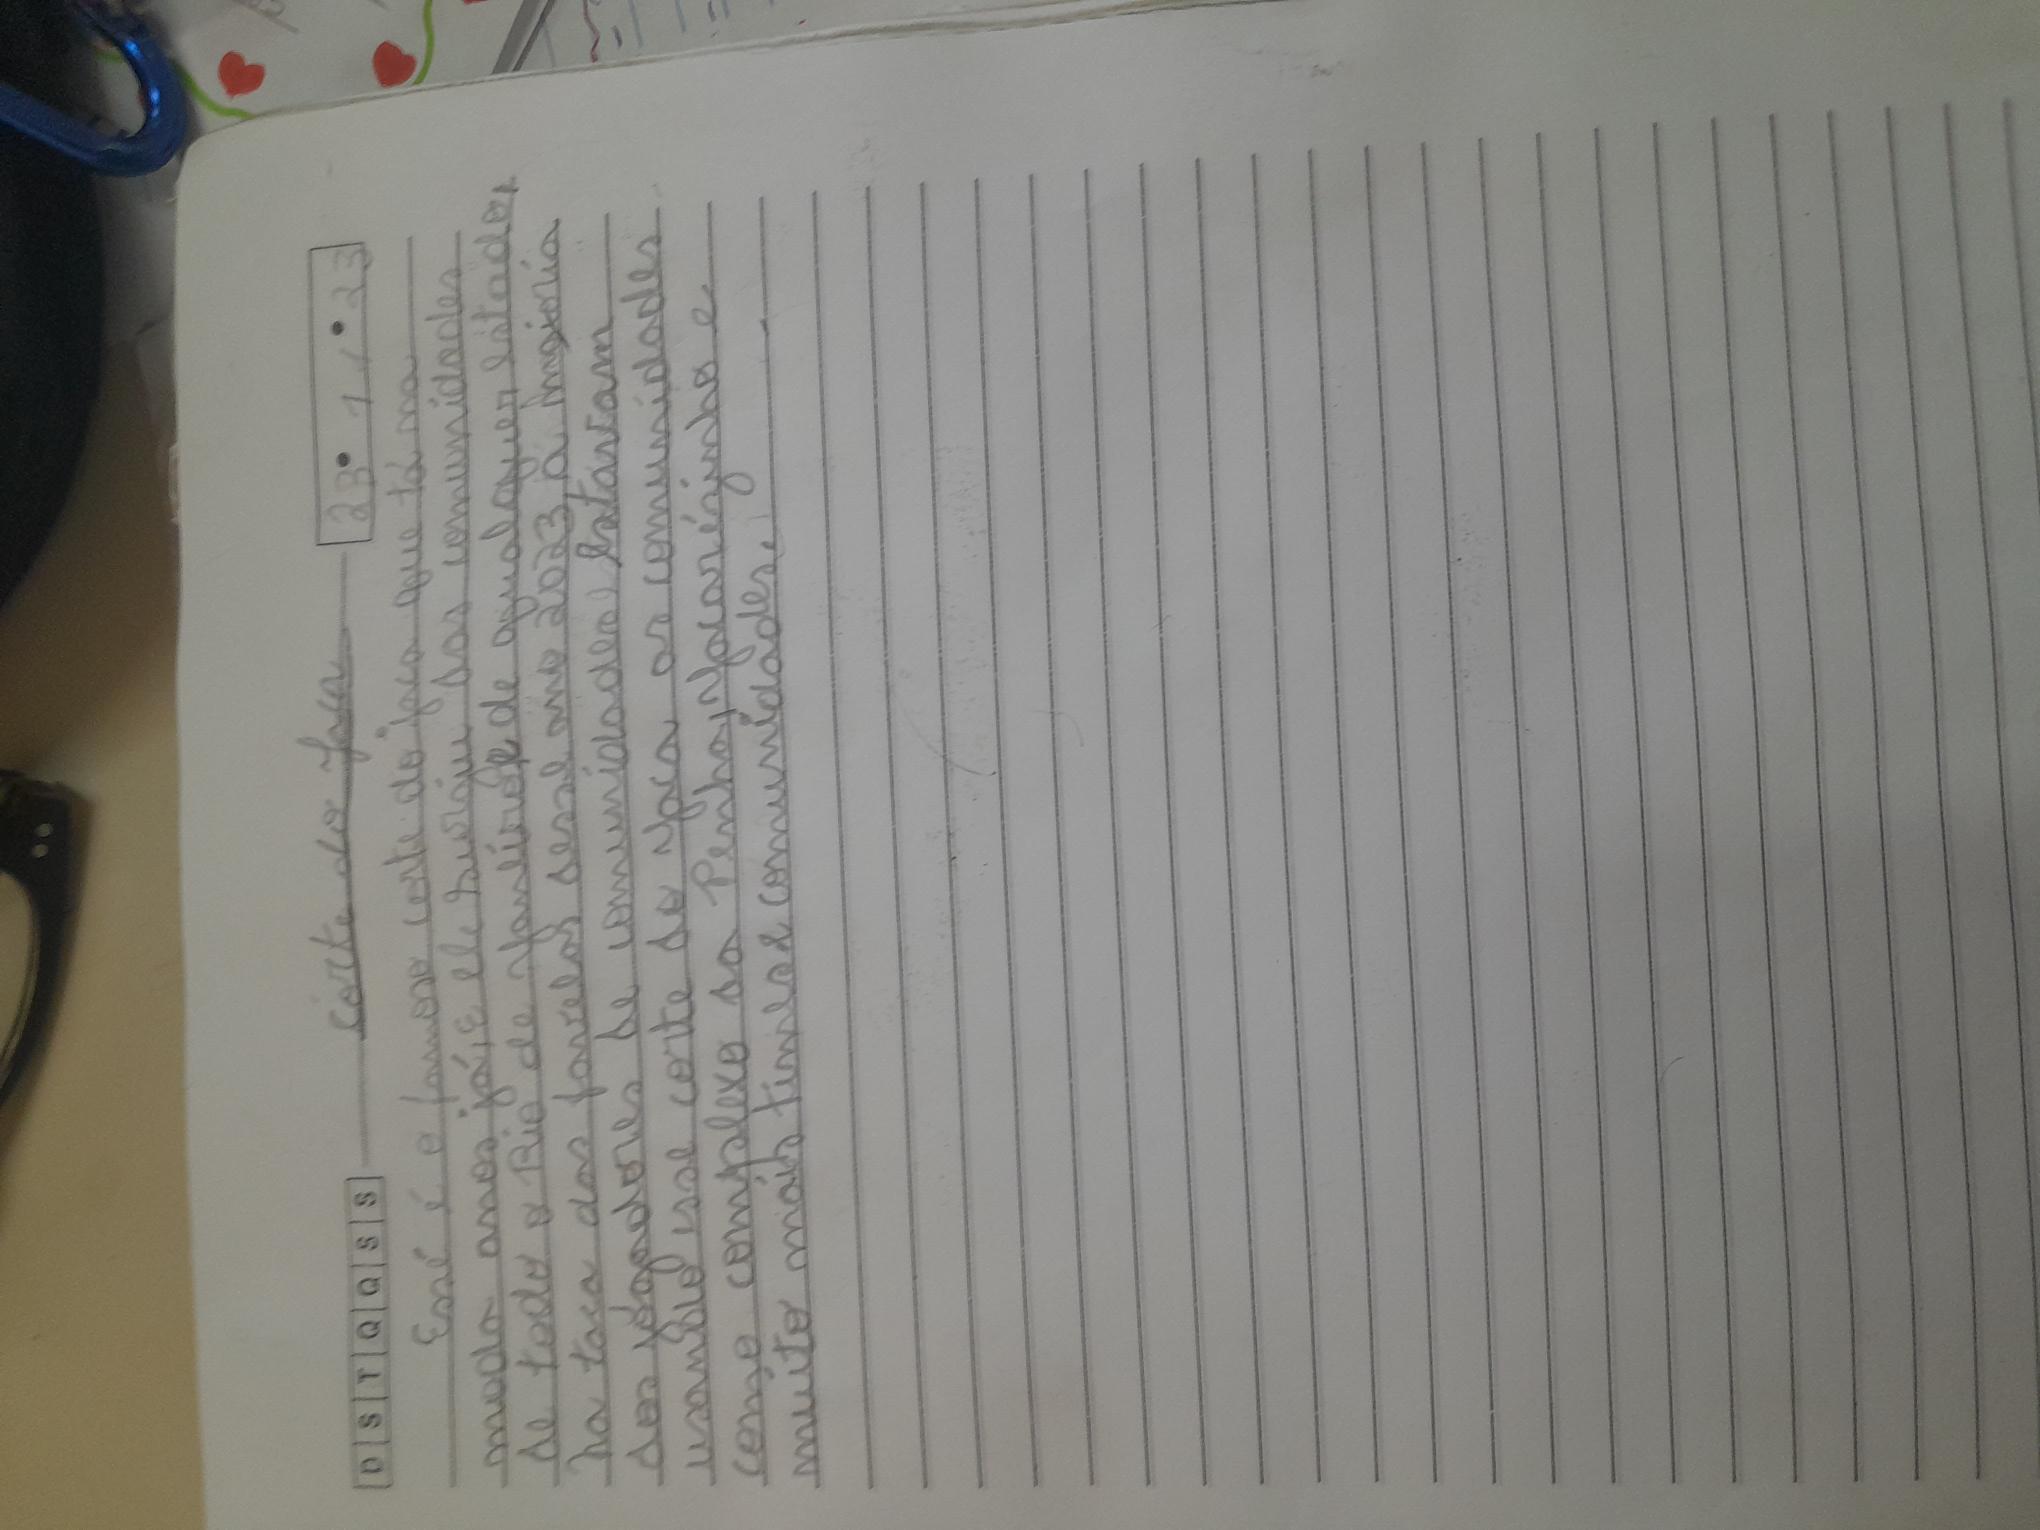 D S T Q Q S S
Corte do Jaca
23 11 23
Essé é o famoso corte do jaca que tá na
moda anos já, E ele surgiu das comunidades
de todo o Rio de Janeiro de qualquer Estados
na taça das favelas desse ano 2023, a maioria
dos jógadores de comunidades, Estavam
usando esse corte do Jaca as comunidades
como complexo da Penha, Jacarézinho e
muito mais comunidades.